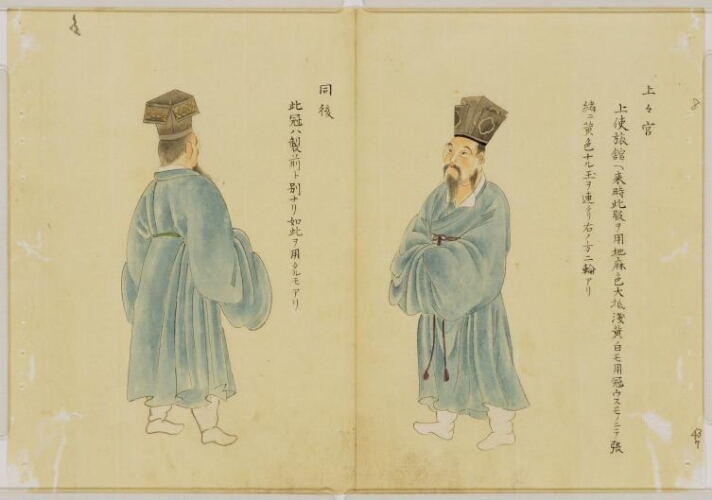 上々官
上使旅舘ヘ来時此服ヲ用地麻色大抵浅黄白モ用冠ウスモノニテ張
緒ニ黄色ナル玉ヲ連タリ右ノ方ニ輪アリ
同後
此冠ハ製前ト別ナリ如此ヲ用タルモアリ
8